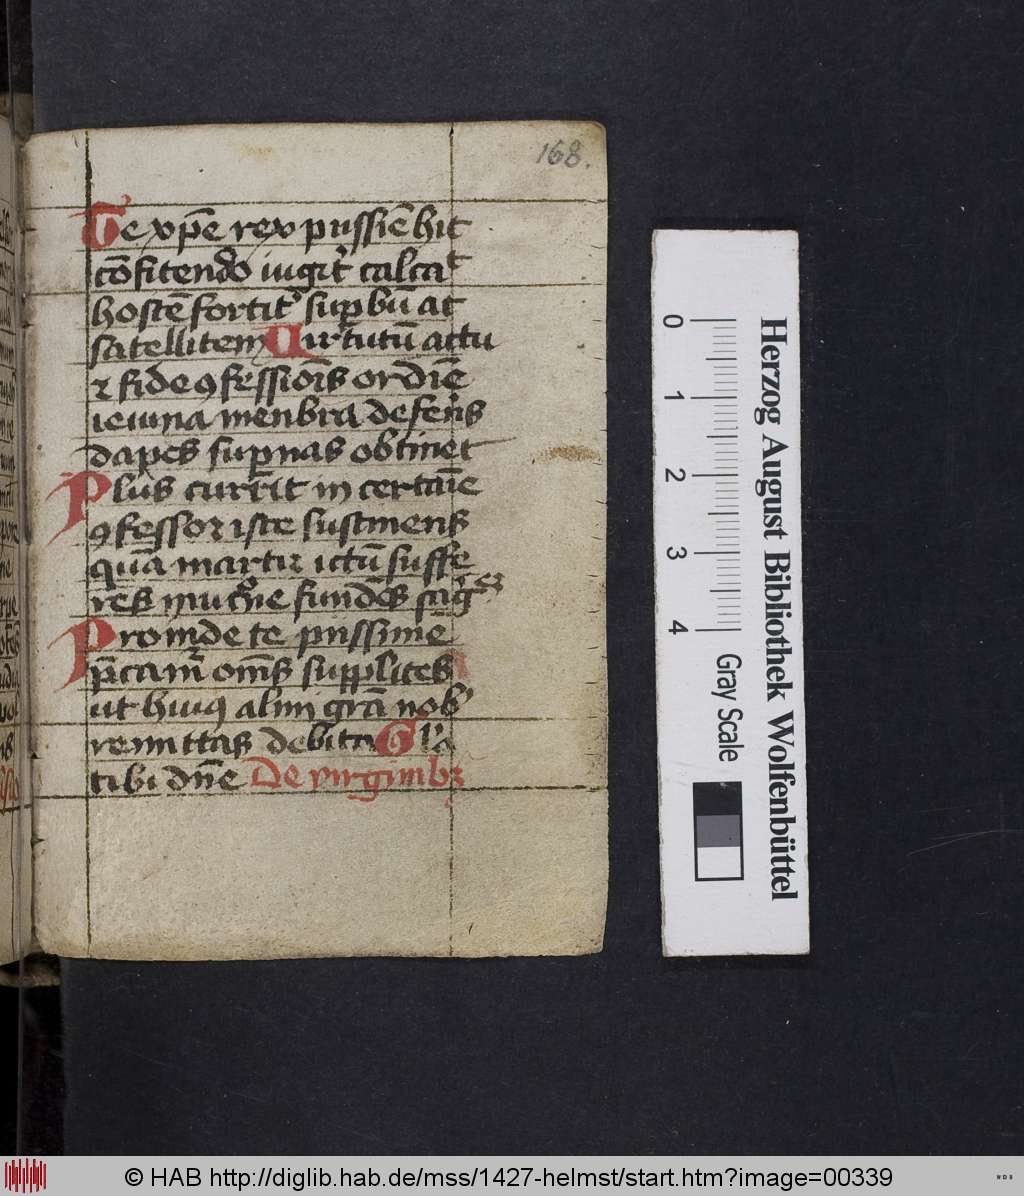 168.
Te xp̄e rex piissiē hic
cōfitendo iugit᷑ calcat
hostē fortit᷑ sup̄bū at
satellitem Virtutū actu
⁊ fide ꝯfessiōis ordīe
ieiuna menbra deferēs
dapes sup̄nas obtinet
Plus currit in certaīe
ꝯfessor iste sustinens
quā martir ictū suffe
Proinde te piissime
p̄camur om̄s supplices
ut huiꝰ almi grā nob̄
remittas debita Gl̄a
tibi dn̄e De virginibꝫ
0
1
2
3
4
Gray Scale
Herzog August Bibliothek Wolfenbüttel
© HAB http://diglib.hab.de/mss/1427-helmst/start.htm?image=00339